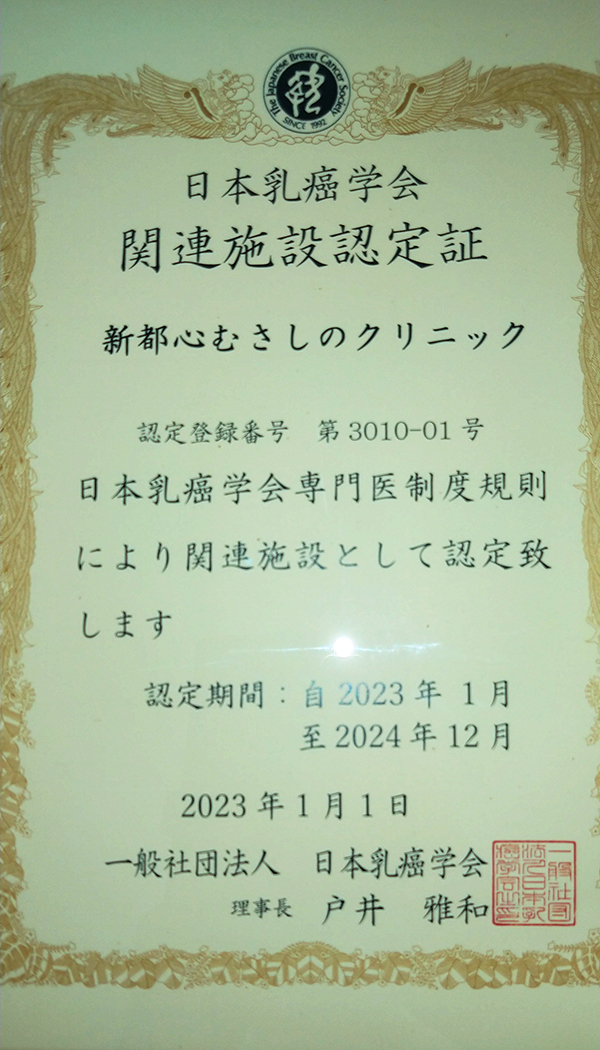 The Japanese Breast Cancer Society
SINCE 1992
日本乳癌学会
関連施設認定証
新都心むさしのクリニック
認定登録番号 第3010-01号
日本乳癌学会専門医制度規則
により関連施設として認定致
します
認定期間：自 2023年 1月
至 2024年12月
2023年1月1日
一般社団法人 日本乳癌学会
理事長 戸井 雅和